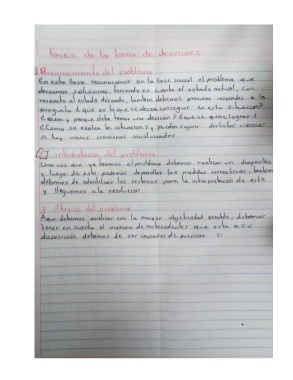 Fases de la toma de desiones
Reconocimiento del problema
En esta fase reconocemos en la fase inicial el problema que
deseamos solucionar, teniendo en cuenta el estado actual, con
respecto al estado deseado, tambien debemos procurar responder a la
pregunta ¿ que es lo que se desea conseguir en esta situacion?
¿ Quien y porque debe tomar una decision? ¿que se quiere lograr?
¿Como se explica la situacion y pueden seguir distintas visiones
si hay varias personas involucradas
del problema
Una vez que ya tenemos el problema debemos realizar un diagnostico
y luego de esto podemos desarrollar las medidas correctivas, tambien
debemos de identificar los sintomas para la interpretacion de este
y lleguemos a la resolucion.
3 del problema
Aqui debemos analizar con la mayor objetividad posible, debemos
tener en cuenta el maximo de antecedentes que esta a su
disposicion debemos de ser capaces de precisar si